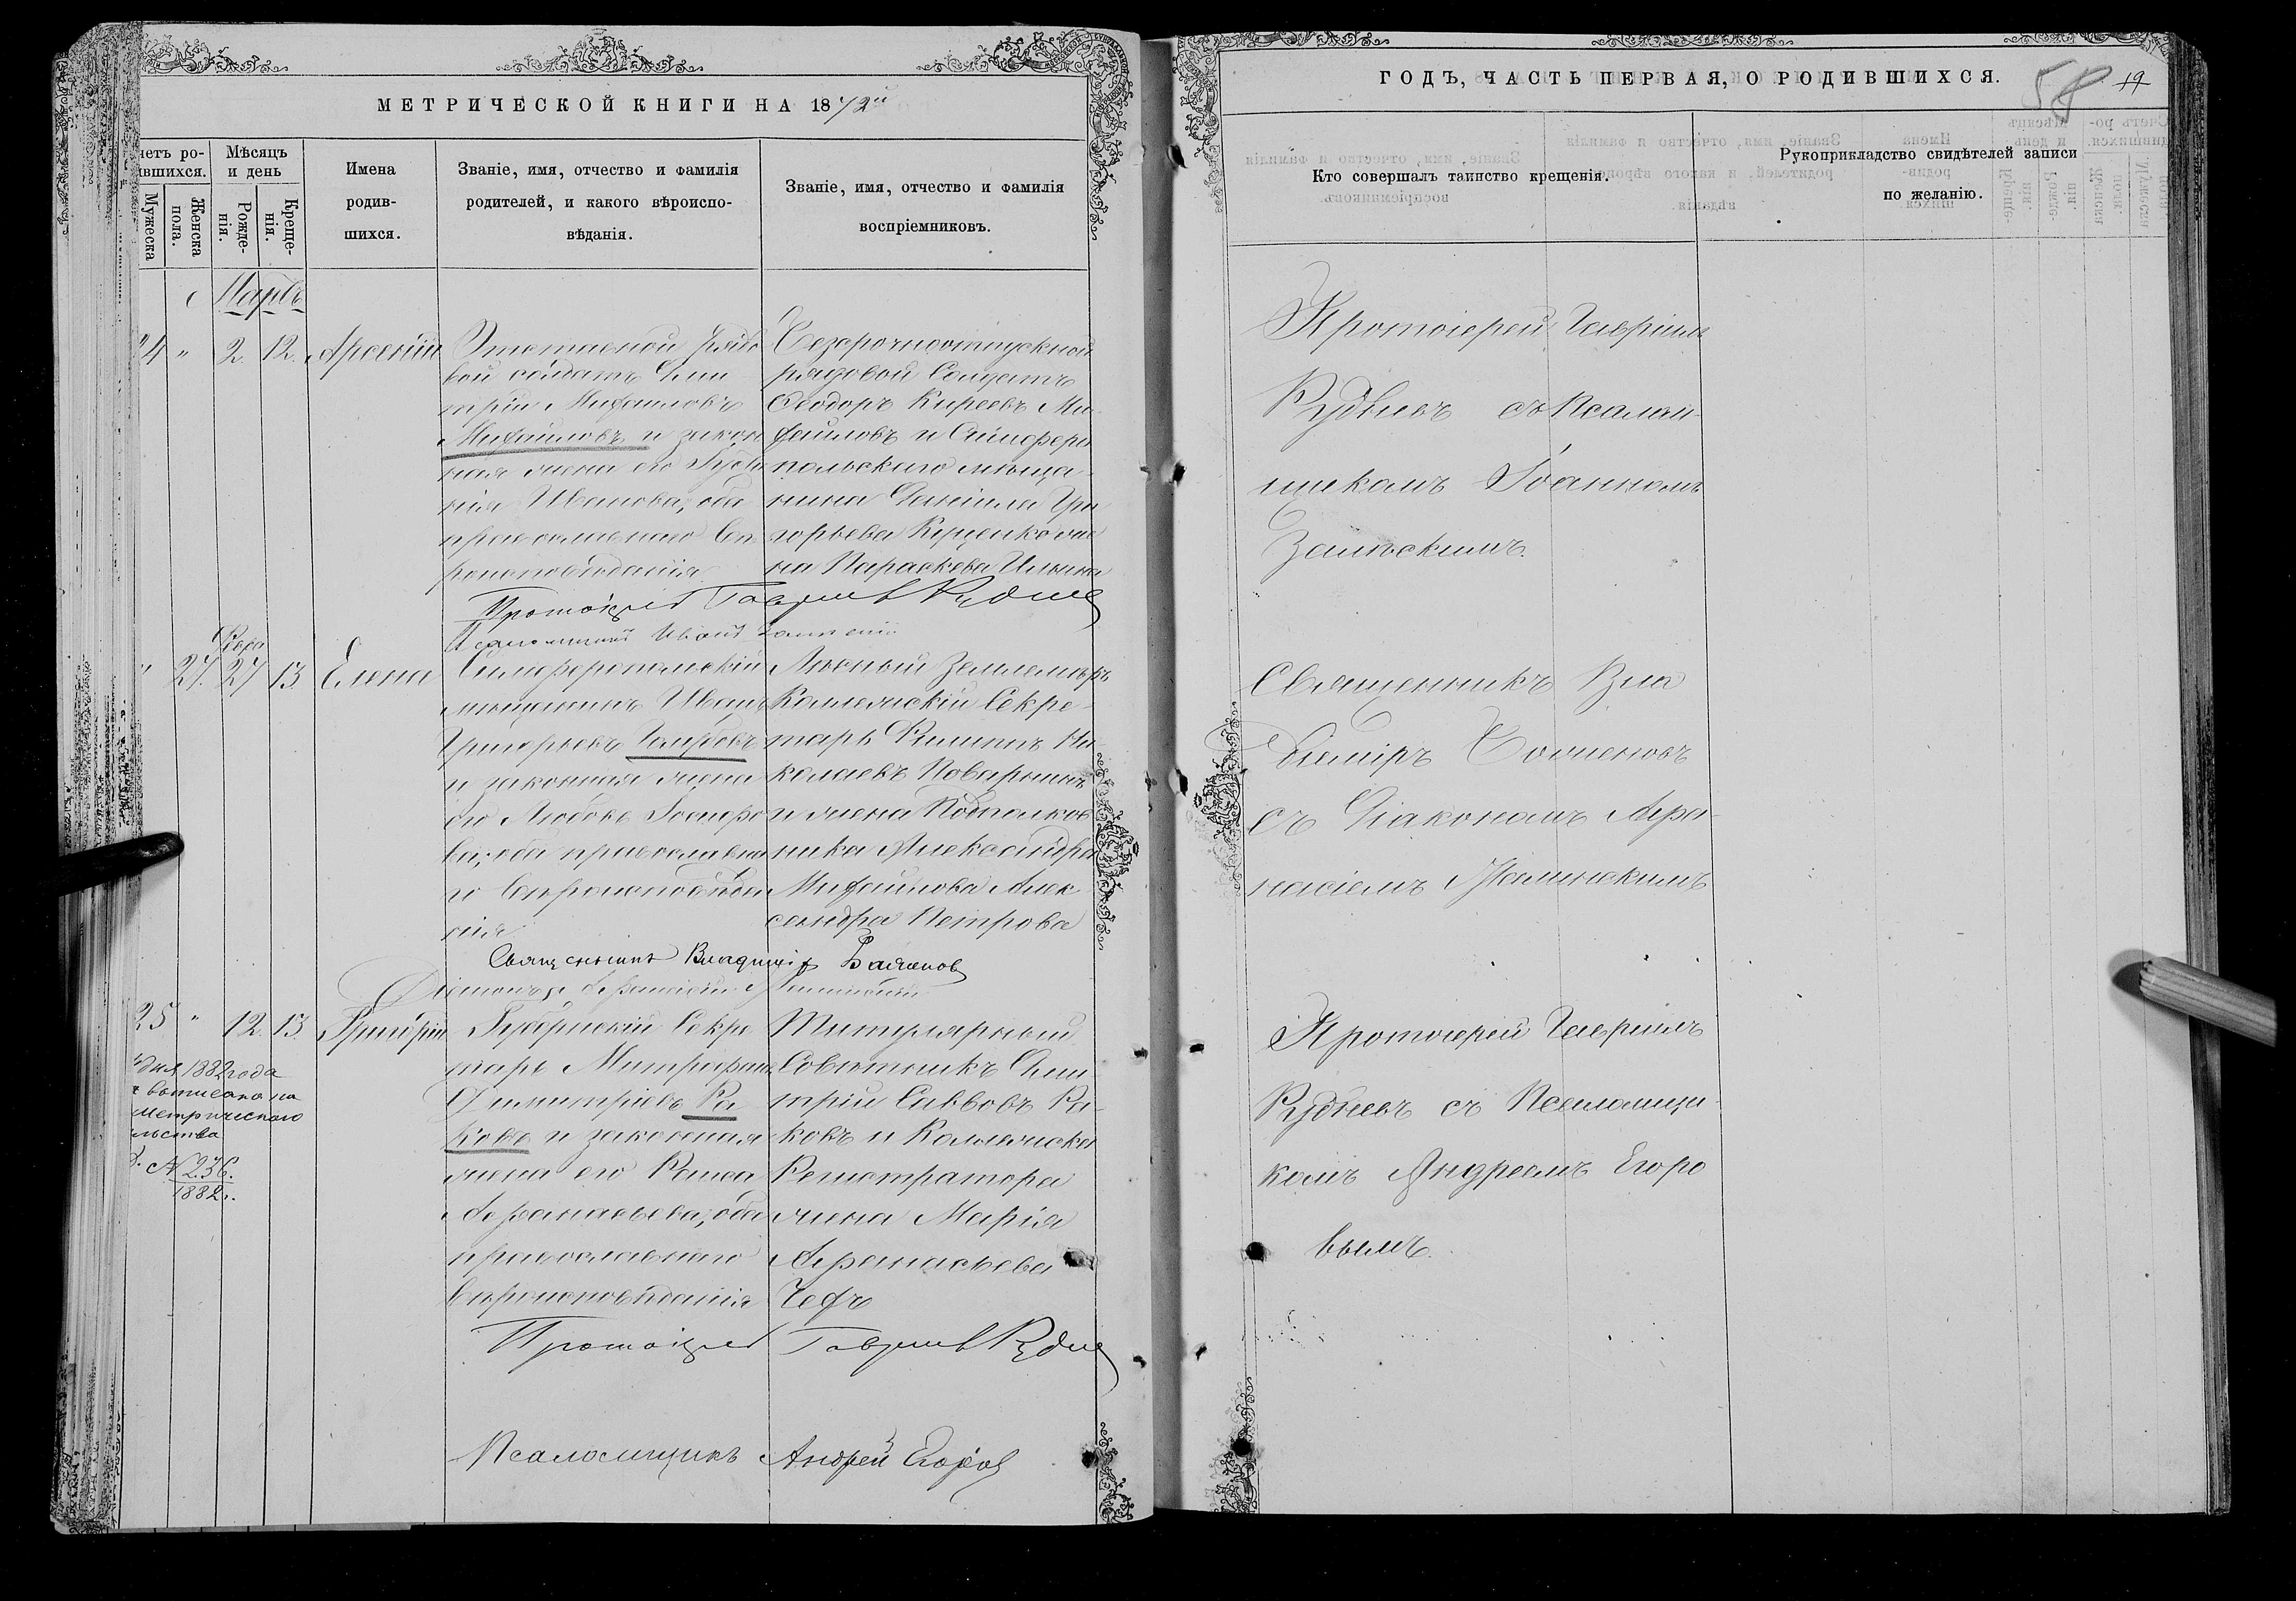 МЕТРИЧЕСКОЙ КНИГИ НА 1872й
четъ ро-
вшихся.
Мужеска
пола.
Женска
Мѣсяцъ
и день
Рожде-
нія.
Креще-
нія.
Имена
родив-
шихся.
Званіе, имя, отчество и фамилія
родителей, и какого вѣроиспо-
вѣданія.
Званіе, имя, отчество и фамилія
воспріемниковъ.
Мартъ
24 " 2. 12. Арсеній
рядо
вой солдатъ Дми
трій Михайловъ
Михайловъ и закон
ная жена его
нія Иванова, оба
православнаго вѣ
роисповѣданія
Безсрочноотпускной
рядовой Солдатъ
Ѳеодоръ Киреевъ Ми
хайловъ и Симферо
польскаго мѣща-
нина Даніила Гри
горьева Куценко же
на Параскева Ильина
Протоіерей Гавріилъ Руднев
Псаломщикъ Иванъ
Февр
" 27. 27 13 Елена
Симферопольскій
мѣщанинъ Иванъ
Григорьевъ
и законная жена
его Любовь
ва, оба православна
го вѣроисповѣда
нія
Лѣсный Землемѣръ
Коллежскій Секре-
тарь Филиппъ Ни
колаевъ Поварнинъ
и жена Подполков
ника Александра
Михайлова Алек
сандра Петрова
Священникъ Владиміръ Баженов
Діаконъ Афанасій
25 " 12. 13. Григорій
Губернскій Секре
тарь Митрофанъ
Димитріевъ Ра
ковъ и законная
жена его Раиса
Афанасьева, оба
православнаго
вѣроисповѣданія
Титулярный
Совѣтникъ Дми-
трій Саввовъ Ра-
ковъ и Коллежска
Регистратора
жена Марія
Афанасьева
Чефъ
1882 года
выписано на
метрическаго
льства
№ 236.
1882 г.
Протоіерей Гавріилъ Руднев
Псаломщикъ Андрей Егоров
ГОДЪ, ЧАСТЬ ПЕРВАЯ, О РОДИВШИХСЯ.
58 19
Кто совершалъ таинство крещенія.
Рукоприкладство свидѣтелей записи
по желанію.
Протоіерей Гавріилъ
Рудневъ съ Псалом-
щикомъ Іоанномъ
Священникъ Вла
диміръ Баженовъ
съ Діакономъ Афа-
насіемъ
Протоіерей Гавріилъ
Рудневъ съ Псаломщи-
комъ Андреемъ Егоро
вымъ.